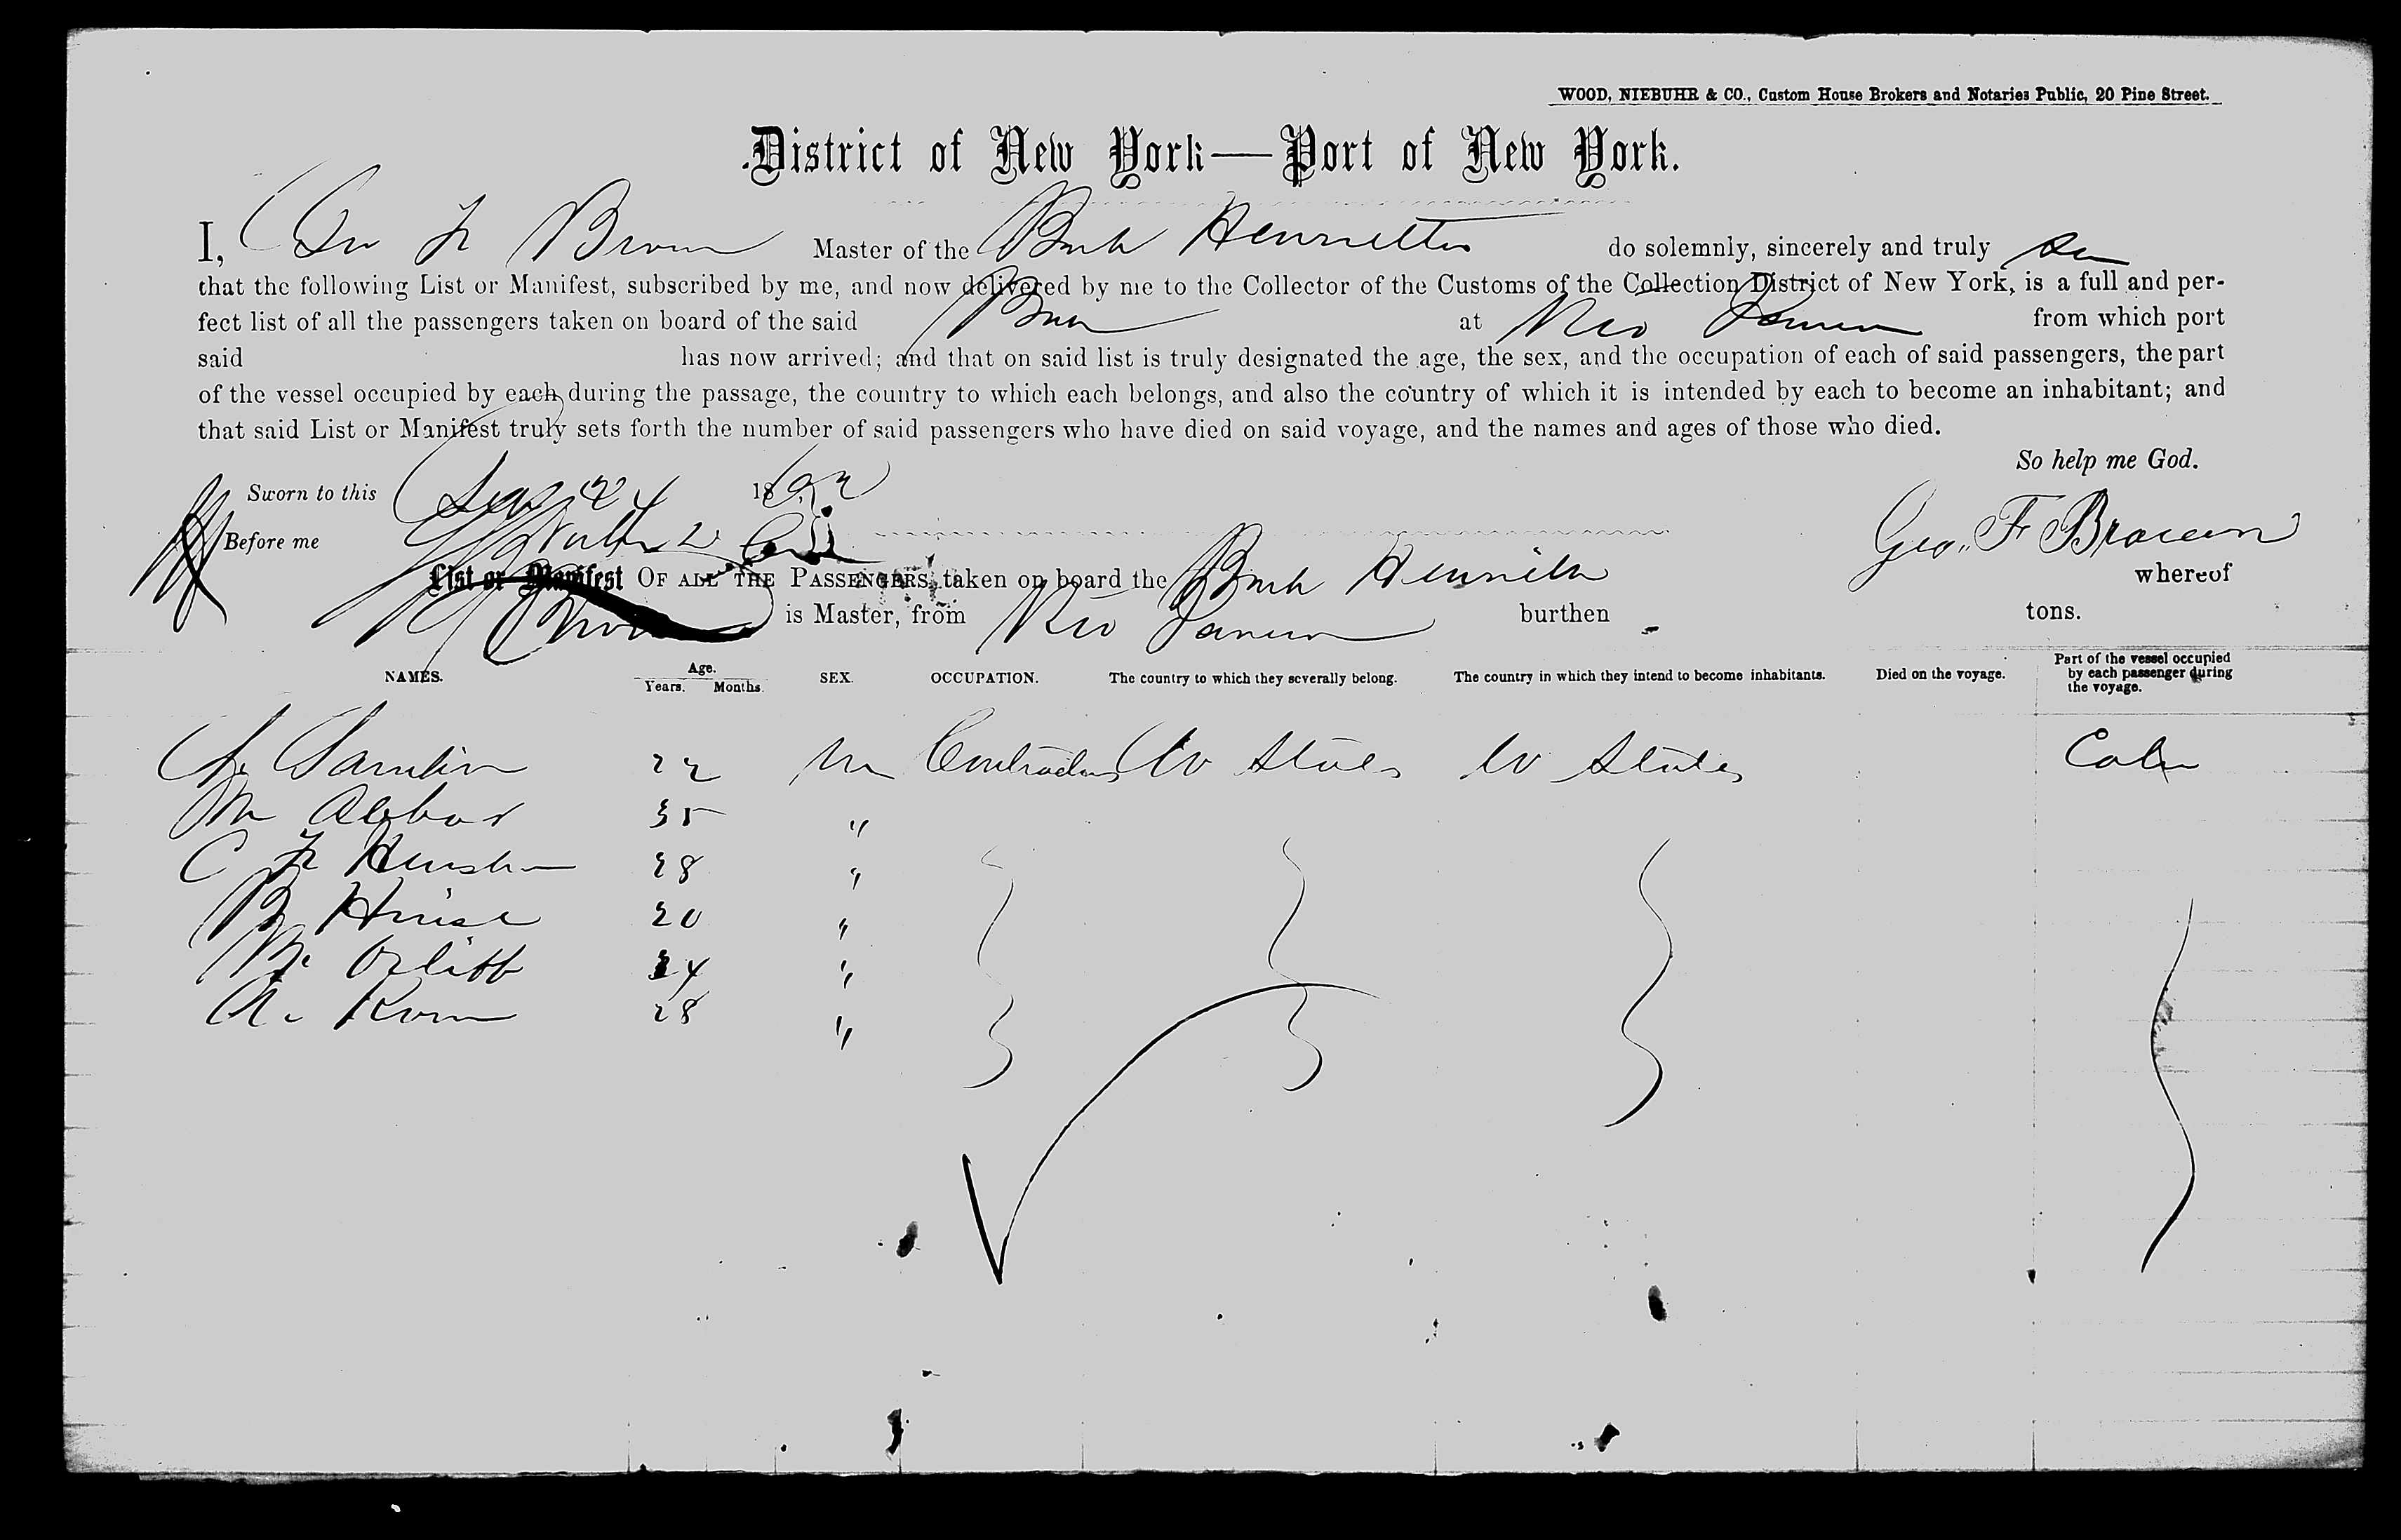 WOOD, NIEBUHR & CO., Custom House Brokers and Notaries Public, 20 Pine Street.
District of New York—Port of New York.
I, Geo F Brown Master of the Bark Henrietta do solemnly, sincerely and truly
that the following List or Manifest, subscribed by me, and now delivered by me to the Collector of the Customs of the Collection District of New York, is a full and per-
fect list of all the passengers taken on board of the said Bark at Rio Janeiro from which port
said has now arrived; and that on said list is truly designated the age, the sex, and the occupation of each of said passengers, the part
of the vessel occupied by each during the passage, the country to which each belongs, and also the country of which it is intended by each to become an inhabitant; and
that said List or Manifest truly sets forth the number of said passengers who have died on said voyage, and the names and ages of those who died.
So help me God.
Sworn to this 24 18
Before me Geo. F Brown
List or Manifest OF ALL THE PASSENGERS taken on board the Bark Henrietta whereof
is Master, from Rio Janeiro burthen tons.
NAMES. Age. Years. Months. SEX. OCCUPATION. The country to which they severally belong. The country in which they intend to become inhabitants. Died on the voyage. Part of the vessel occupied by each passenger during the voyage.
22 m Contractor U States U States Cabin
M 35 "
C F 28 "
B 20 "
24 "
A. 28 "